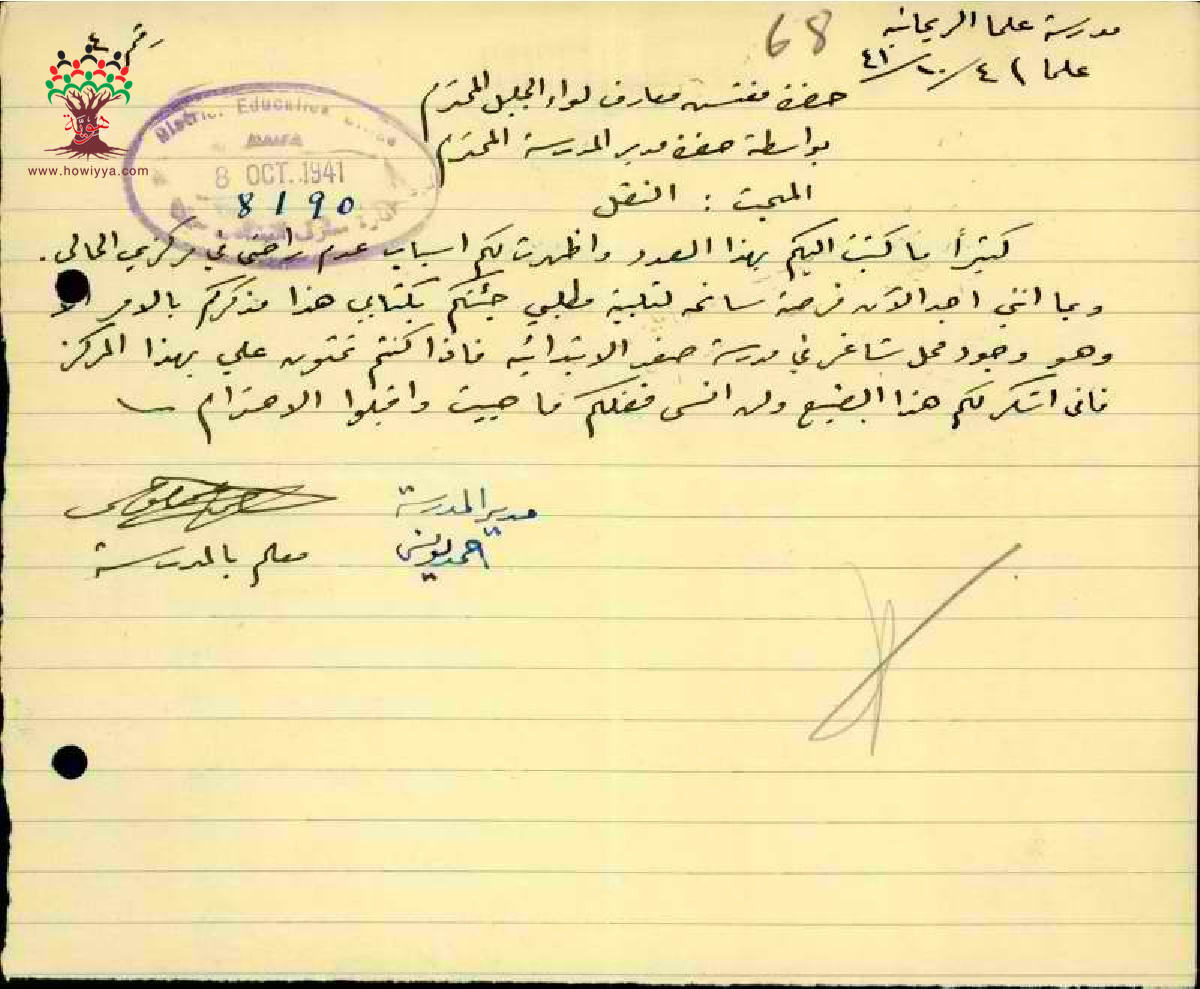 مدرسة علما الريحانيه
علما ٤/١٠/٤١
68
رقم ٤
هوية
www.howiyya.com
District Education Office
HAIFA
8 OCT. 1941
8190
حضرة مفتش معارف لواء الجليل المحترم
بواسطة حضرة مدير المدرسة المحترم
المبحث : النقل
كثيراً ما كتبت اليكم بهذا الصدد واظهرت لكم اسباب عدم راحتي في مركزي الحالي .
وبما انني اجد الآن فرصة سانحه لتلبية مطلبي جئتكم بكتابي هذا مذكركم بالامر الا
وهو وجود محل شاغر في مدرسة صفد الابتدائيه فاذا كنتم تمنون علي بهذا المركز
فاني اشكر لكم هذا الصنيع ولن انسى فضلكم ما حييت واقبلوا الاحترام
مدير المدرسة
احمد يونس
معلم بالمدرسة